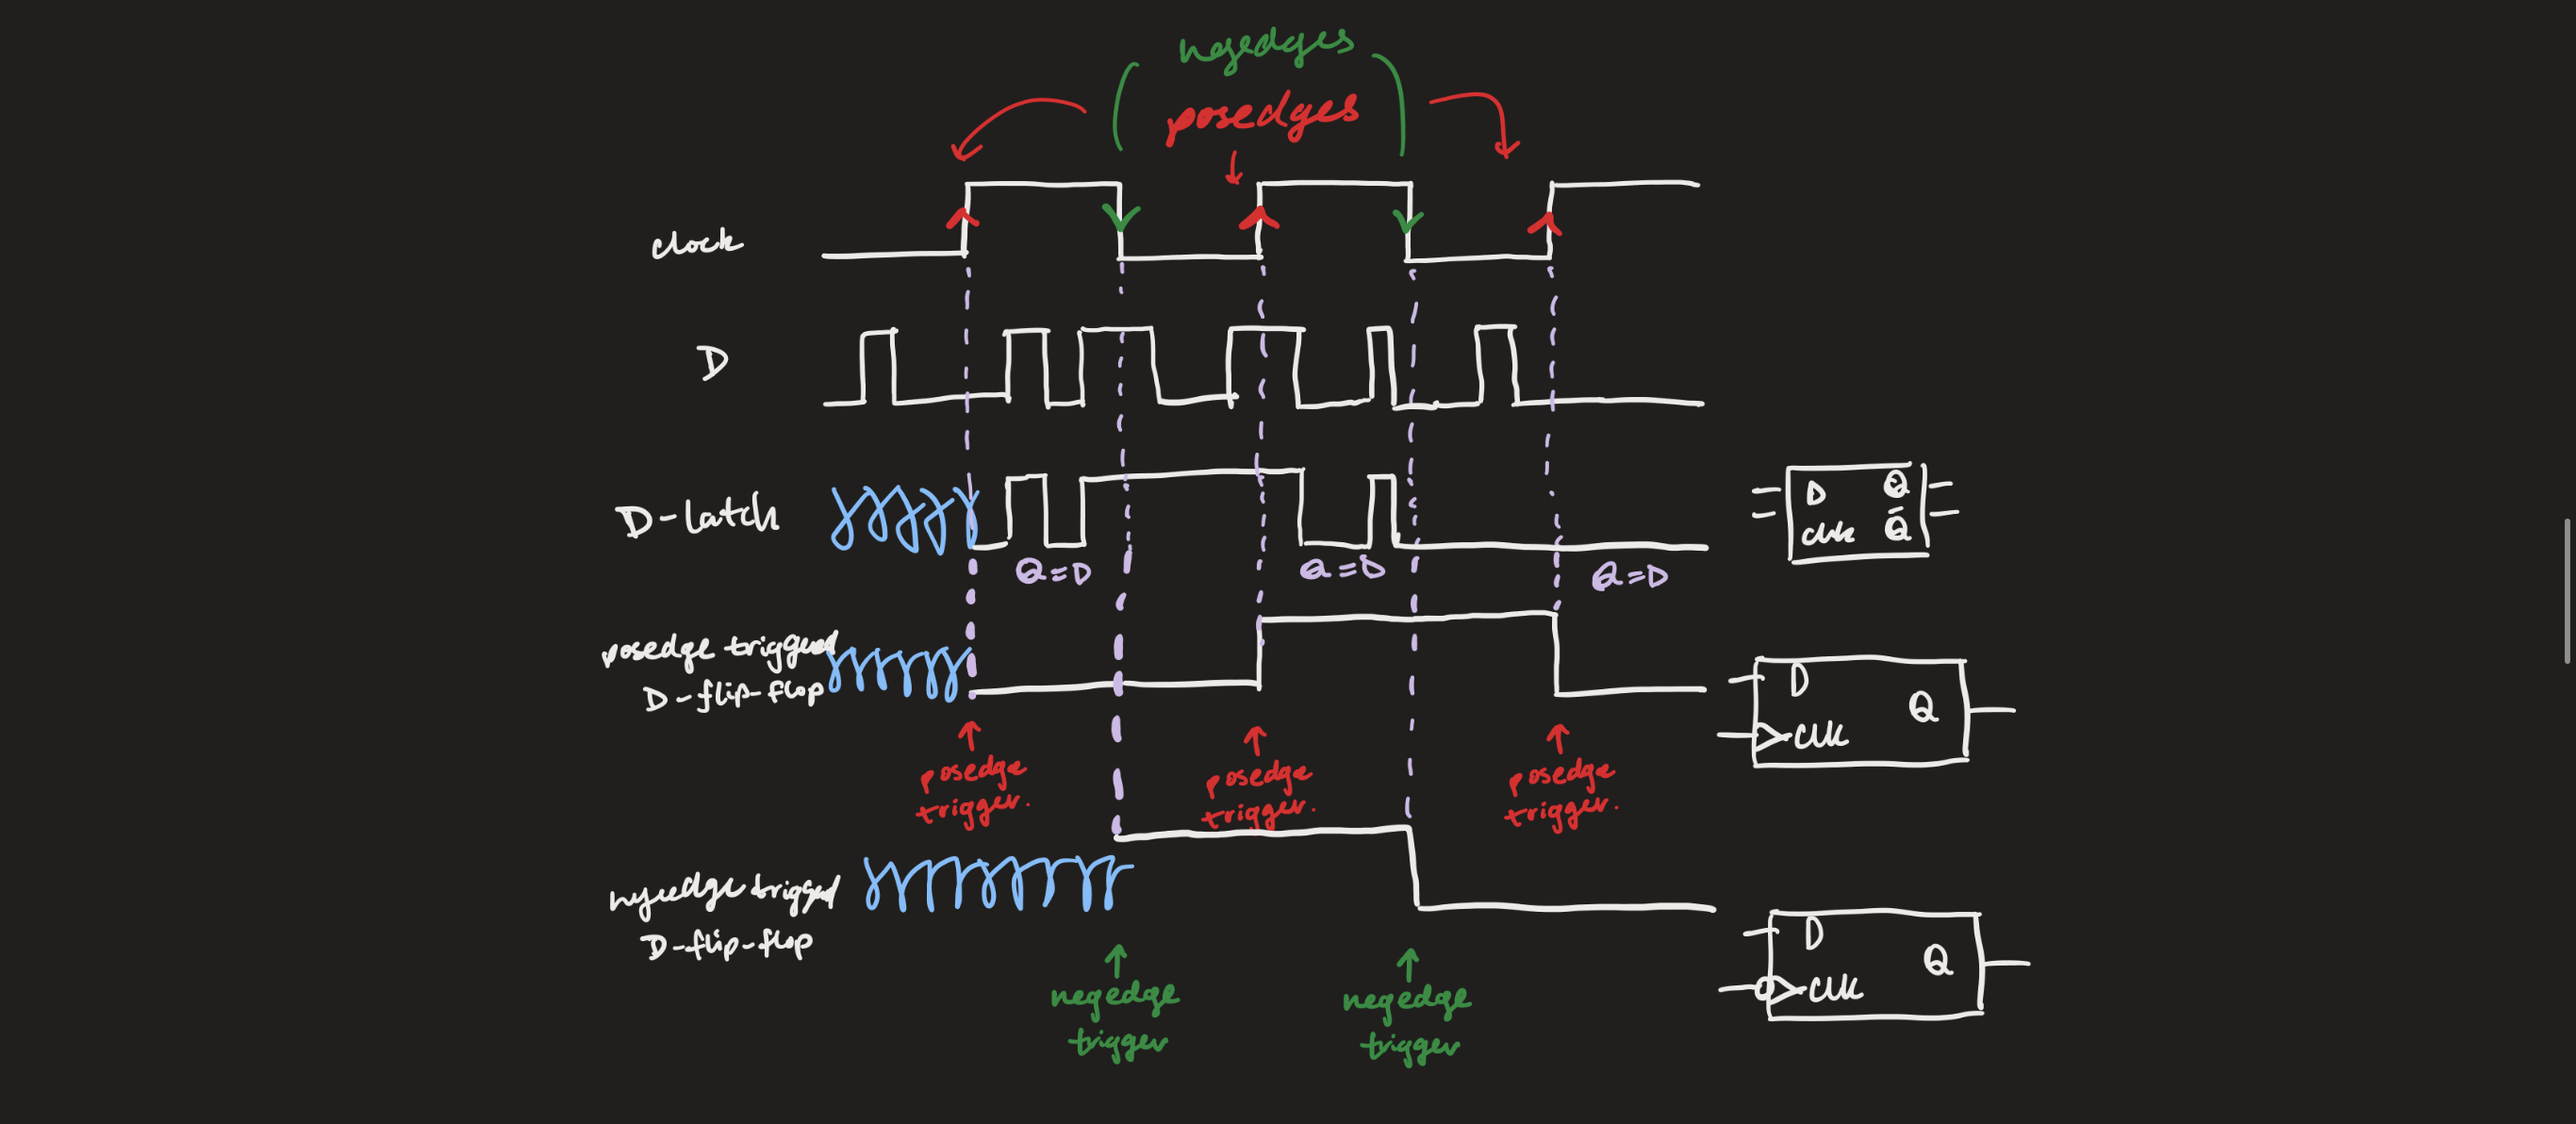 negedges
posedges
clock
D
D-latch
Q=D
Q=D
Q=D
D Q
CLK Q̅
posedge triggered
D-flip-flop
D
Q
CLK
posedge
trigger.
posedge
trigger.
posedge
trigger.
negedge triggered
D-flip-flop
D
Q
CLK
negedge
trigger
negedge
trigger